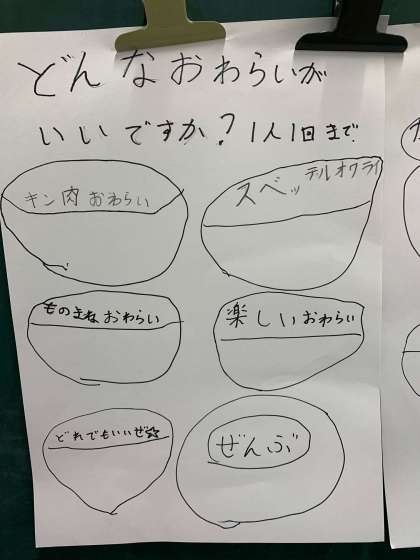 どんなおわらいが
いいですか？1人1回まで
キン肉おわらい
スベッテルオワライ
ものまねおわらい
楽しいおわらい
どれでもいいぜ☆
ぜんぶ